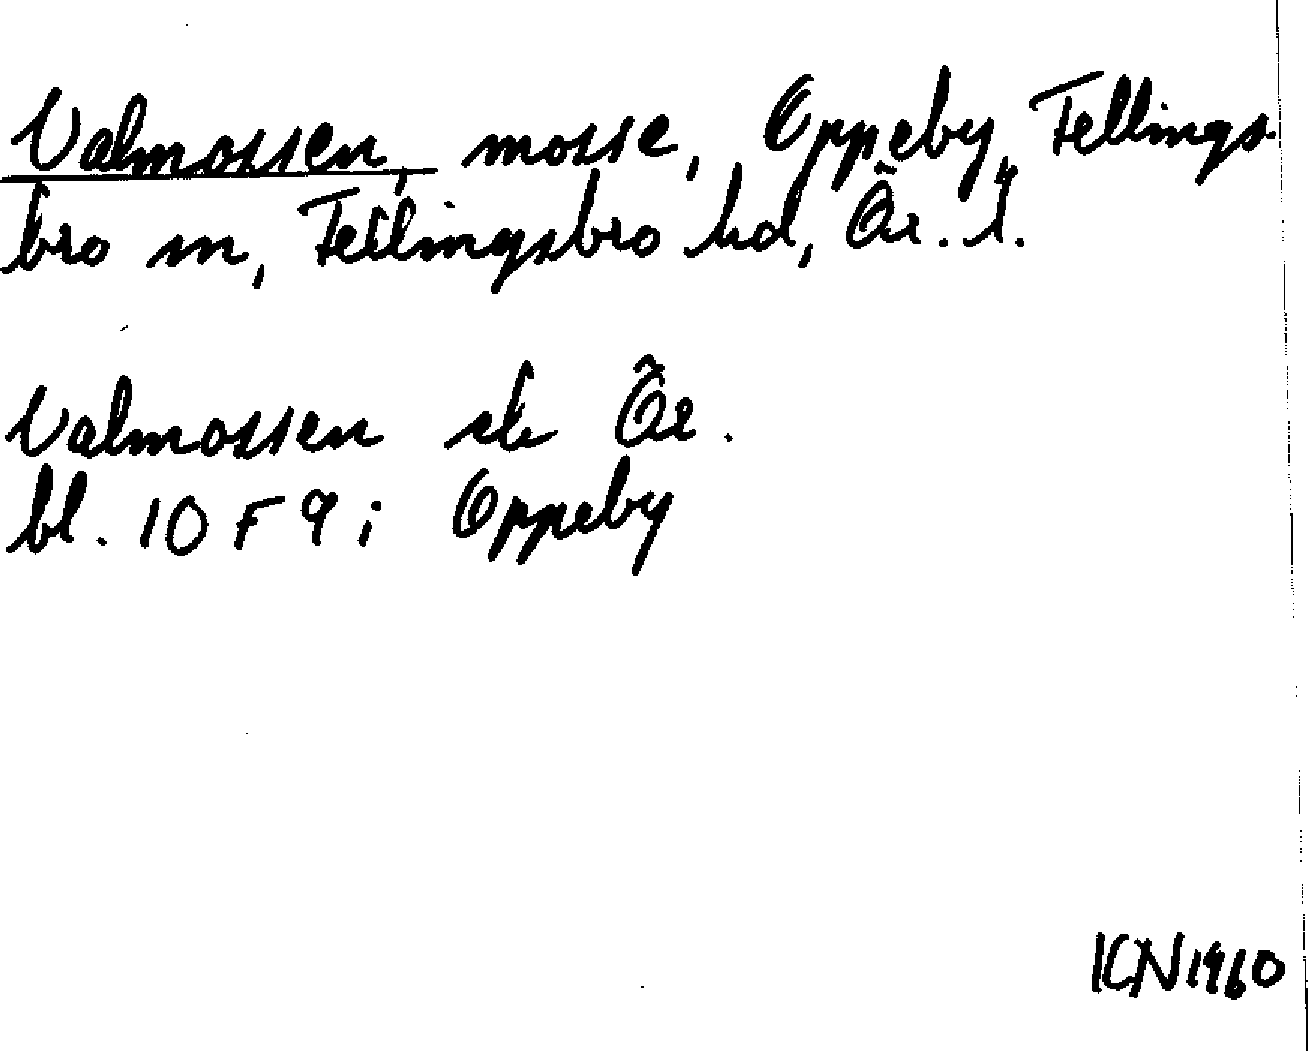 Valmossen, mosse, Oppeby, Fellings-
bro sn, Fellingsbro hd, Ör. l.
Valmossen ek Ör.
bl. 10 F 9 i Oppeby
ICN 1960